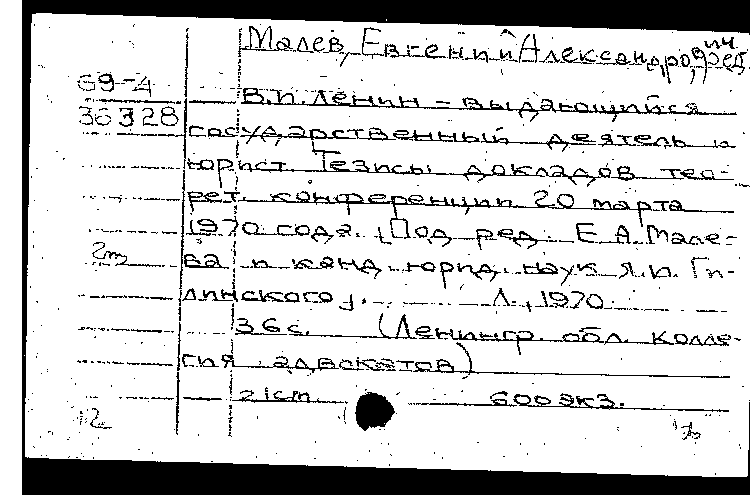 Малев, Евгений Александрович, ред.
69-4
36328
В.И. Ленин – выдающийся
государственный деятель и
юрист. Тезисы докладов тео-
рет. конференции 20 марта
1970 года. [Под ред. Е.А. Мале-
2т
ва и канд. юрид. наук Я.И. Ги-
линского]. Л., 1970.
36 с. (Ленингр. обл. колле-
гия адвокатов)
21cm. 600 экз.
12